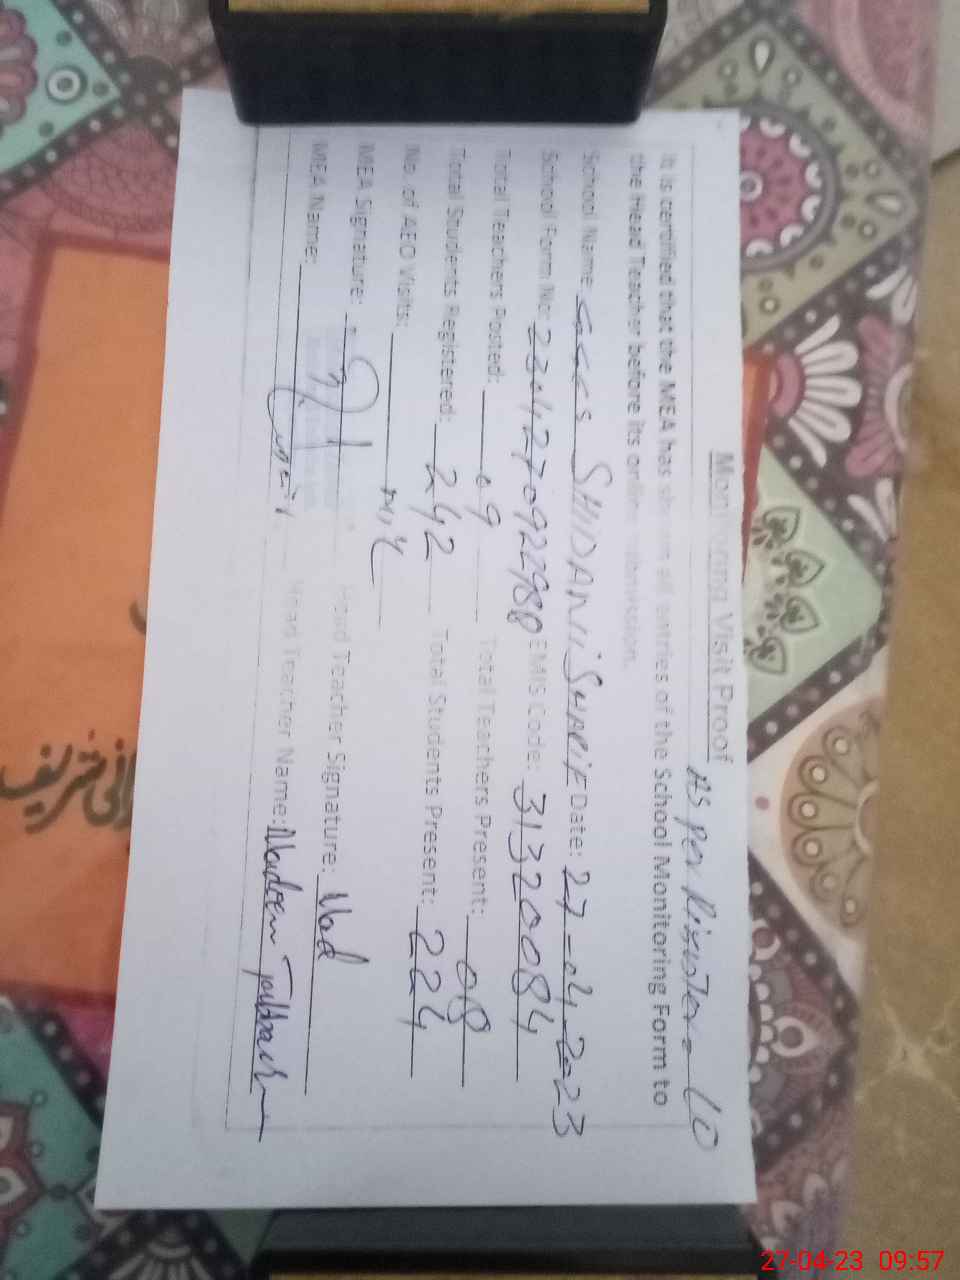 Monitoring Visit Proof
As per Register = 10
It is certified that the MEA has shown all entries of the School Monitoring Form to
the Head Teacher before its online submission.
School Name: SHIDANI SHARIF Date: 27-04-2023
School Form No: EMIS Code: 31320084
Total Teachers Posted: 09 Total Teachers Present: 08
Total Students Registered: 242 Total Students Present: 224
No. of AEO Visits: Nil
MEA Signature: Head Teacher Signature: Nad
MEA Name: Head Teacher Name: Nadeem
27-04-23 09:57